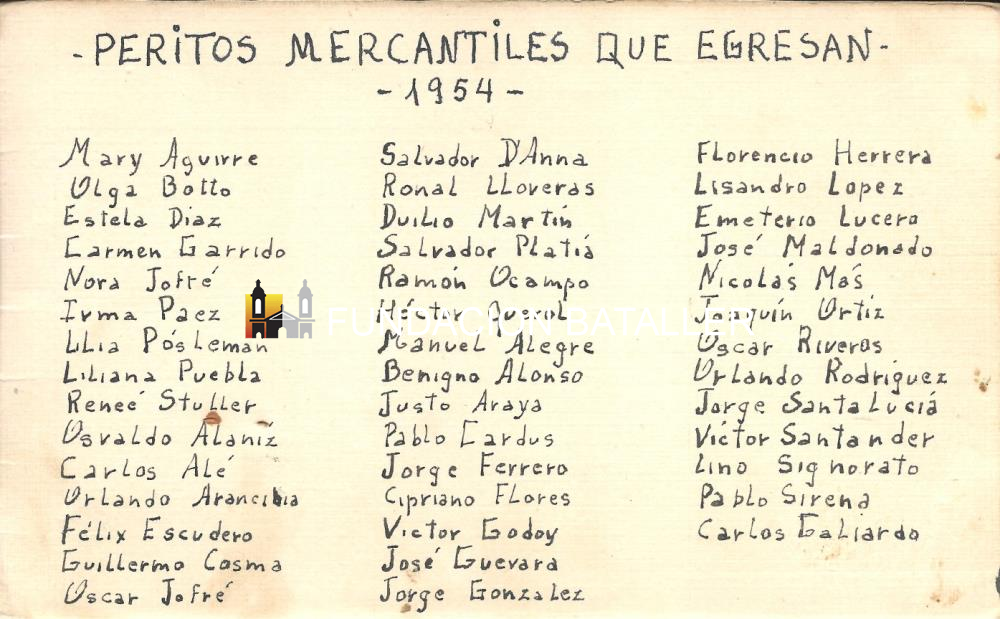 -PERITOS MERCANTILES QUE EGRESAN-
-1954-
Mary Aguirre
Olga Botto
Estela Diaz
Carmen Garrido
Nora Jofré
Irma Paez
Lilia Pósleman
Liliana Puebla
Reneé Stuller
Osvaldo Alaniz
Carlos Alé
Orlando Arancibia
Félix Escudero
Guillermo Cosma
Oscar Jofré
Salvador D'Anna
Ronal Lloveras
Duilio Martín
Salvador Platiá
Ramón Ocampo
Héctor Querol
Manuel Alegre
Benigno Alonso
Justo Araya
Pablo Cardus
Jorge Ferrero
Cipriano Flores
Victor Godoy
José Guevara
Jorge Gonzalez
Florencio Herrera
Lisandro Lopez
Emeterio Lucero
José Maldonado
Nicolás Más
Joaquín Ortiz
Oscar Riveros
Orlando Rodriguez
Jorge Santa Luciá
Victor Santander
Lino Signorato
Pablo Sirena
Carlos Galiardo
FUNDACION BATALLER